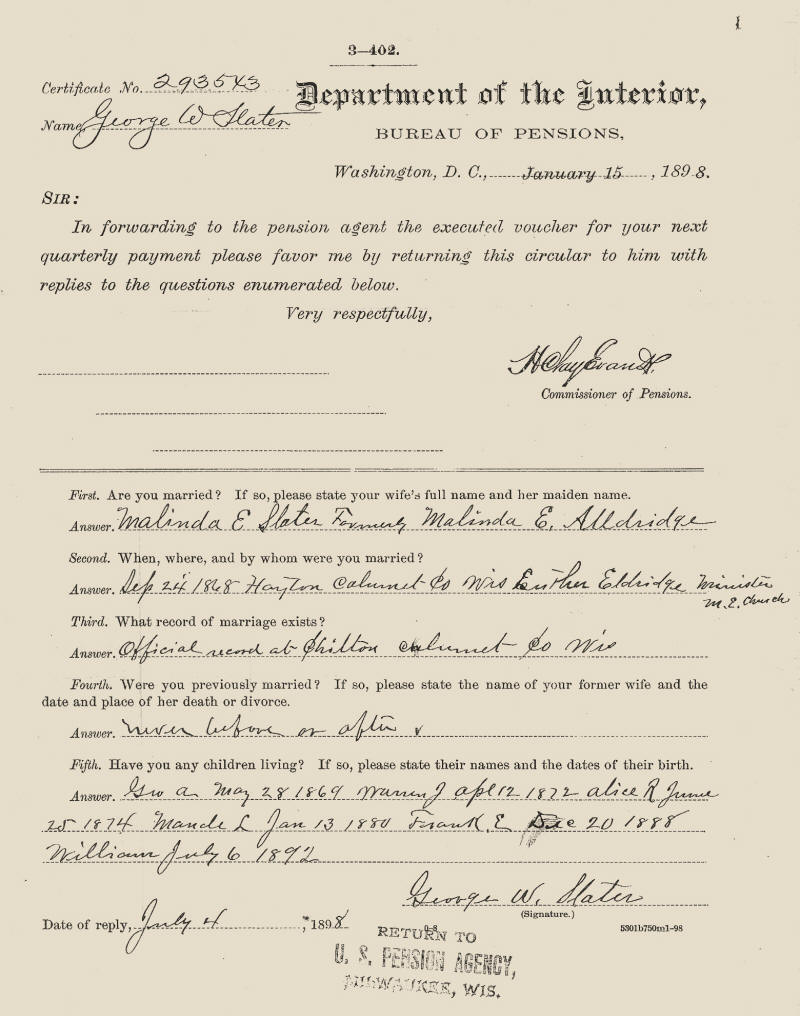 3—402.
Certificate No. 293543
Department of the Interior,
Name, George W Slater
BUREAU OF PENSIONS,
Washington, D. C., January 15, 1898.
SIR:
In forwarding to the pension agent the executed voucher for your next
quarterly payment please favor me by returning this circular to him with
replies to the questions enumerated below.
Very respectfully,
H Clay Evans
Commissioner of Pensions.
First. Are you married? If so, please state your wife's full name and her maiden name.
Answer. Malinda E Slater Formerly Malinda E. Alldridge
Second. When, where, and by whom were you married?
Answer. Sep 24 1868 Hayton Calumet Co Wis Luther Eldridge Minister
M. E. Church
Third. What record of marriage exists?
Answer. Official record at Chilton Calumet Co Wis
Fourth. Were you previously married? If so, please state the name of your former wife and the
date and place of her death or divorce.
Answer. never before or after
Fifth. Have you any children living? If so, please state their names and the dates of their birth.
Answer. Geo a. May 28 1869 Warren J apl 12 1872 alice R June
25 1874 Maude L Jan 13 1880 Frank E Dec 20 1888
William July 6 1892
George W. Slater
(Signature.)
Date of reply, July 4, 1898
5301b750m1-98
RETURN TO
U. S. PENSION AGENCY,
MILWAUKEE, WIS.